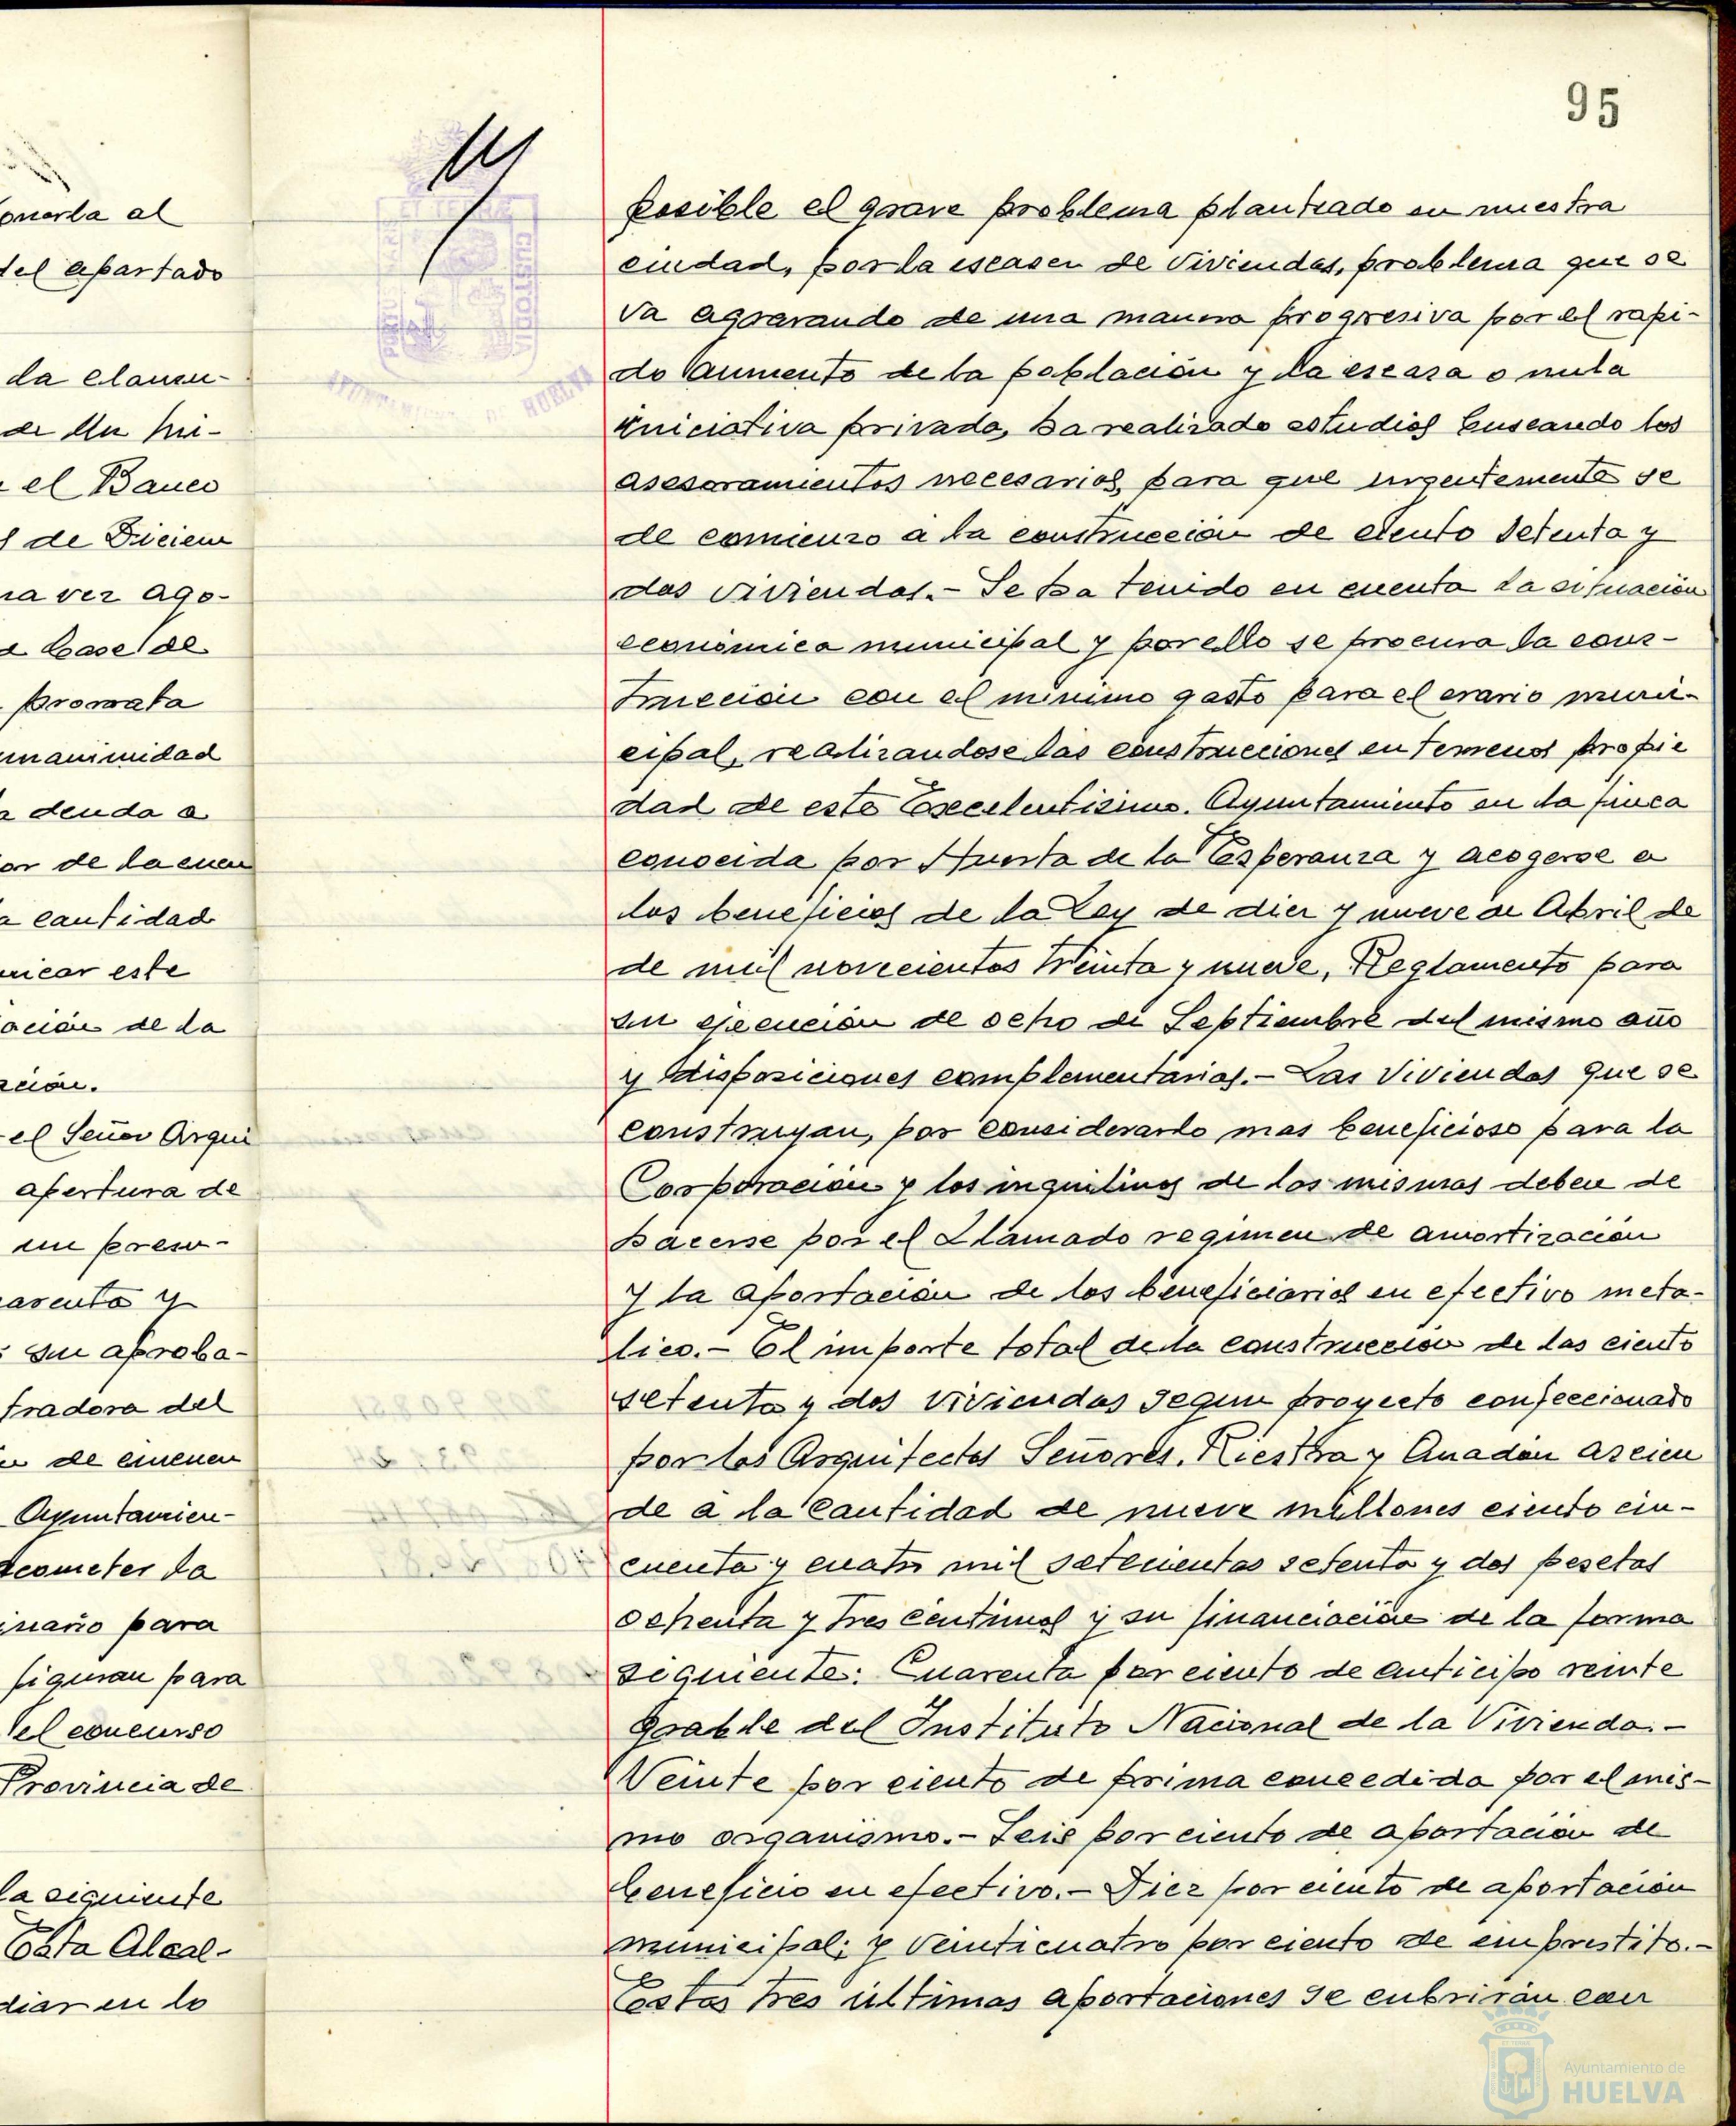 onerla al
del apartado
da clausu-
de Un mi-
el Banco
de Diciem
na vez ago-
a base de
prorrata
unanimidad
a deuda a
or de la cuen
a cantidad
nicar este
ación de la
ación.
el Señor Arqui
apertura de
un presu-
su aproba-
tradora del
de enenen
Ayuntamien-
acometer la
inario para
figuran para
el concurso
Provincia de
la siguiente
Esta Alcal-
diar en lo
95
posible el grave problema plantrado en nuestra
ciudad, por la escases de Viviendas, problema que se
va agravando de una manera progresiva por el rapi-
do aumento de la población y la escasa o nula
iniciativa privada, ha realizado estudios buscando los
asesoramientos necesarios para que urgentemente se
de comienzo a la construcción de ciento setenta y
dos viviendas.- Se ha tenido en cuenta la situación
económica municipal y por ello se procura la cons-
trucción con el mínimo gasto para el erario muni-
cipal, realizandose las construcciones en terrenos propie
dad de este Excelentisimo. Ayuntamiento en la finca
conocida por Huerta de la Esperanza y acogerse a
los beneficios de la Ley de diez y nueve de Abril de
de mil novecientos treinta y nueve, Reglamento para
su ejecución de ocho de Septiembre del mismo año
y disposiciones complementarias.- Las Viviendas que se
construyan, por considerarlo mas beneficioso para la
Corporación y los inquilinos de las mismas deben de
hacerse por el Llamado regimen de amortización
y la aportación de los beneficiarios en efectivo meta-
lico.- El importe total de la construcción de las ciento
setenta y dos viviendas segun proyecto confeccionado
por los Arquitectos Señores. Riestra y Anadón ascien
de a la cantidad de nueve millones ciento cin-
cuenta y cuatro mil setecientas setenta y dos pesetas
ochenta y tres centimos y su financiación de la forma
siguiente: Cuarenta por ciento de anticipo reinte
grable del Instituto Nacional de la Vivienda.-
Veinte por ciento de prima concedida por el mis-
mo organismo.- Seis por ciento de aportación de
beneficio en efectivo.- Diez por ciento de aportación
municipal; y Veinticuatro por ciento de emprestito.-
Estas tres últimas aportaciones se cubrirán con
Ayuntamiento de
HUELVA